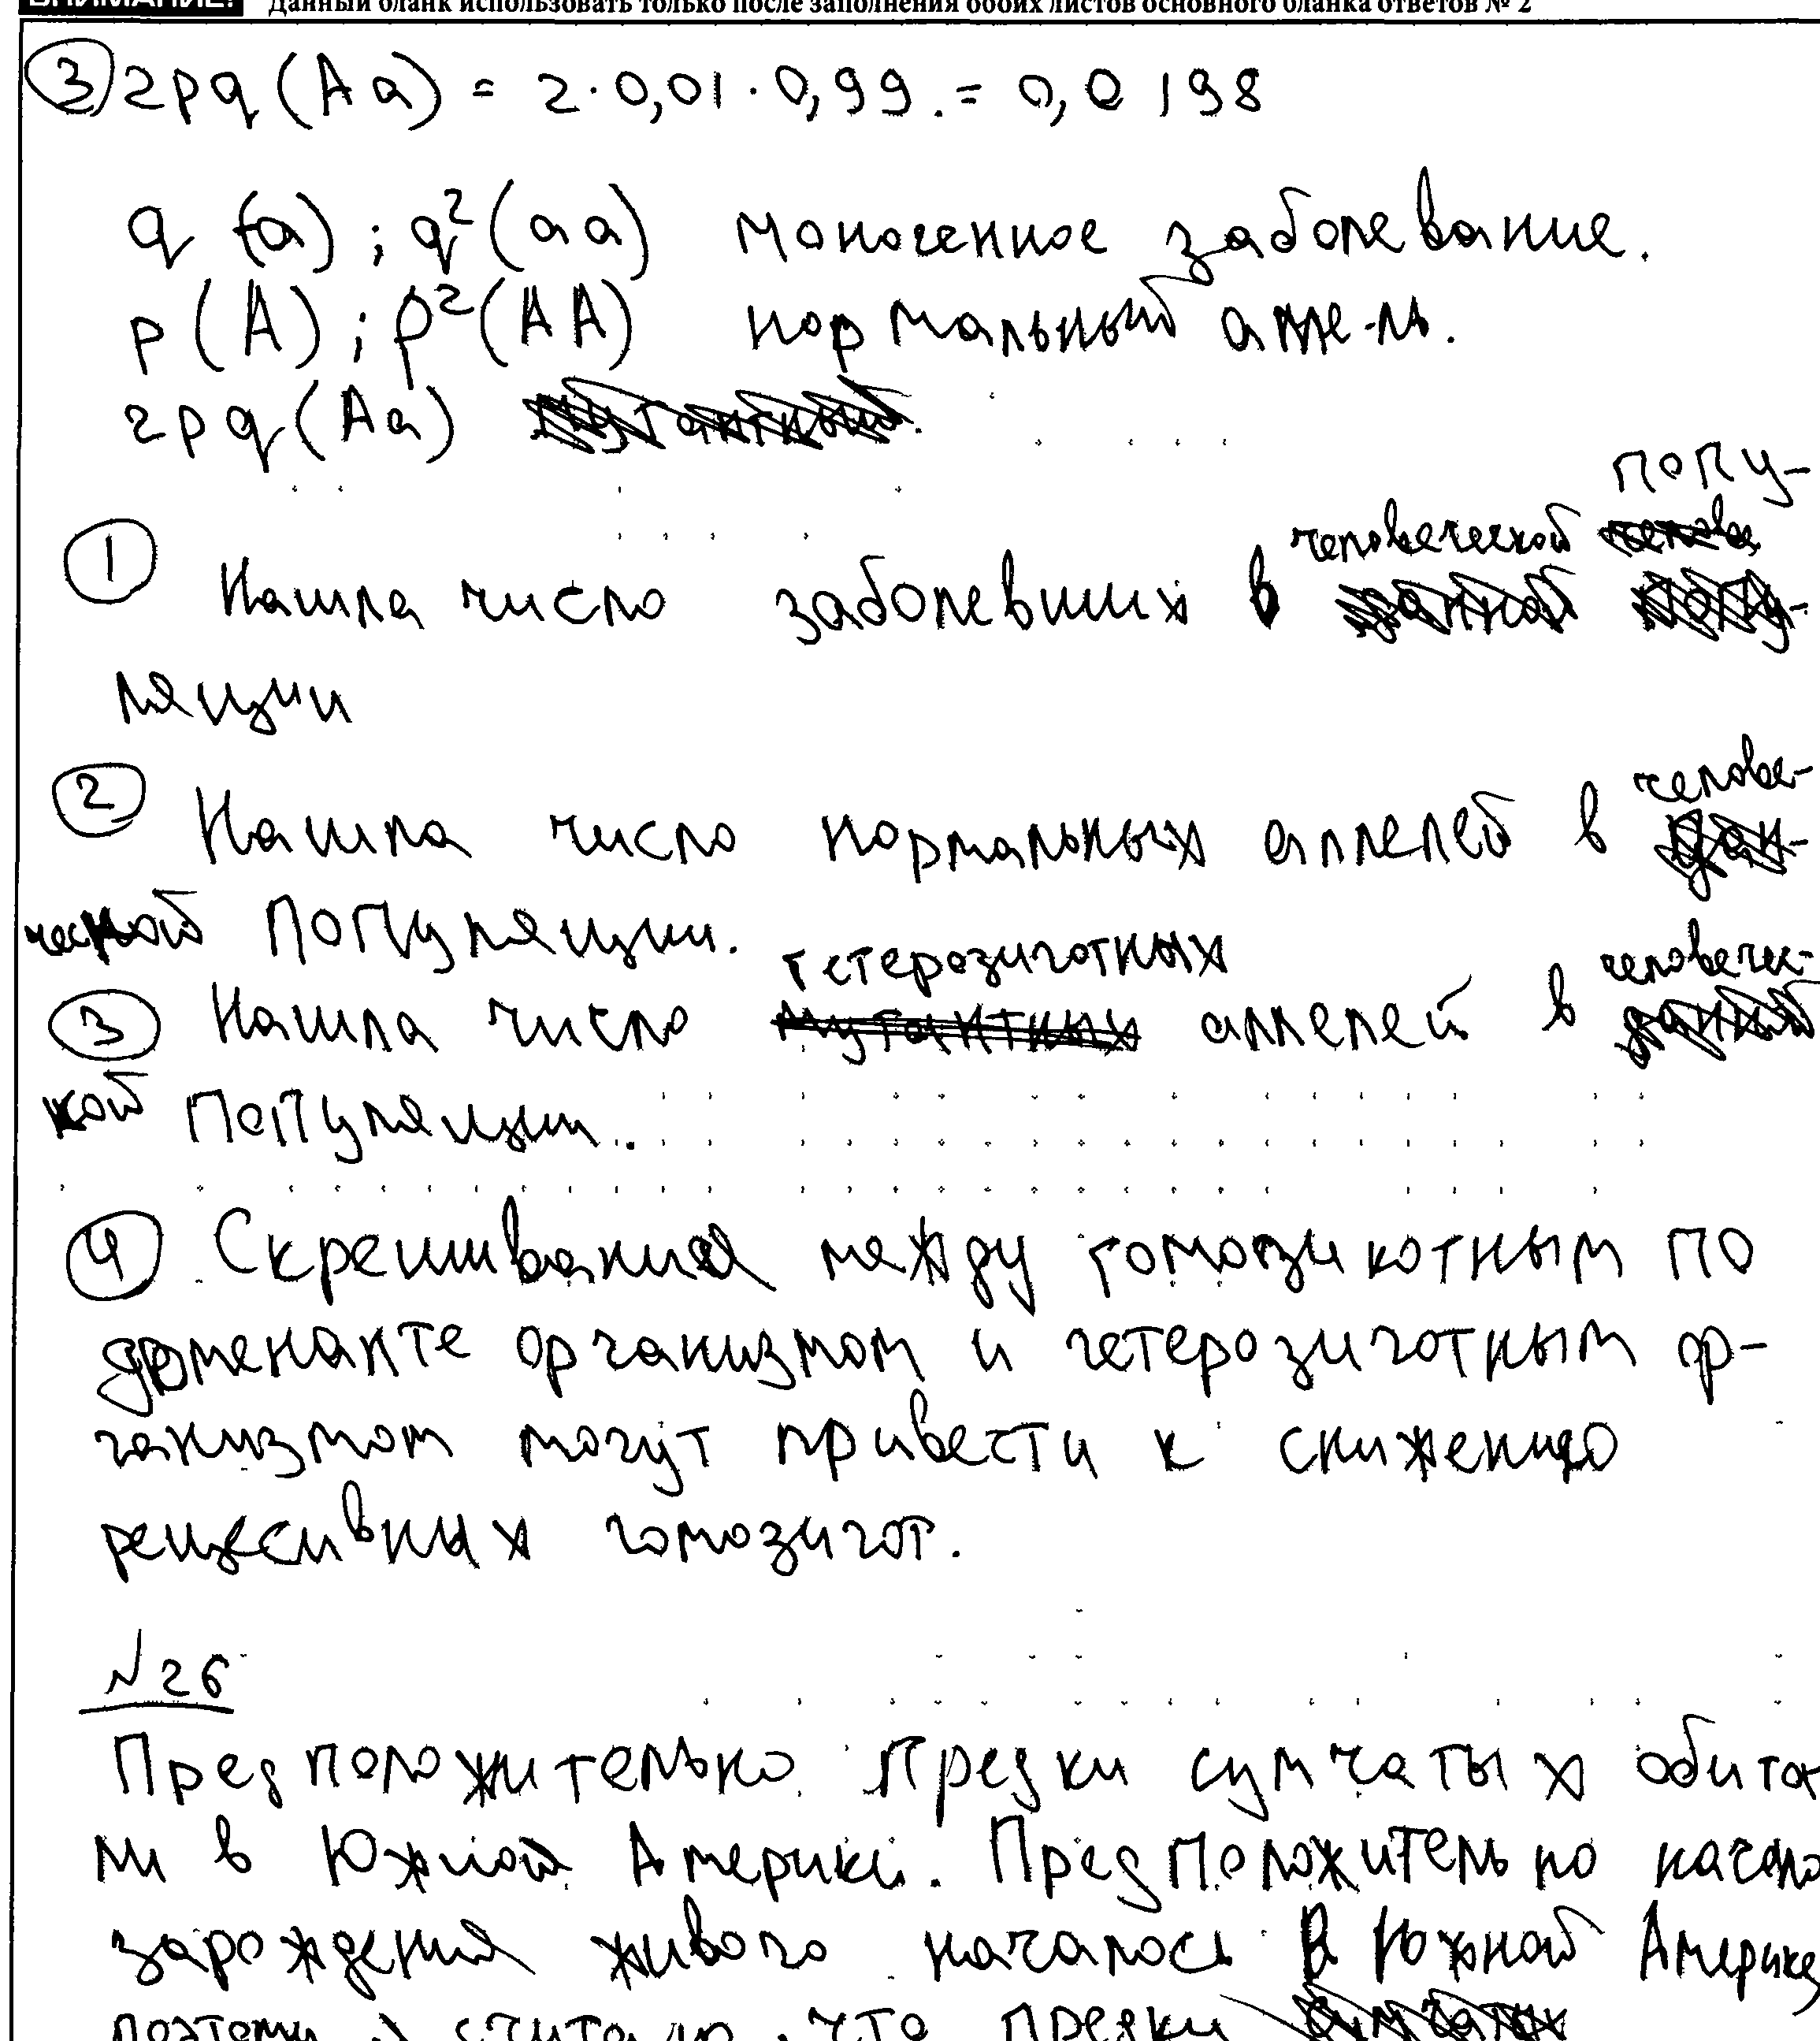 ВНИМАНИЕ! Данный бланк использовать только после заполнения обоих листов основного бланка ответов № 2
③ 2pq (Aa) = 2·0,01·0,99.=0,0198
q (a); q²(aa) моногенное заболевание.
p(A); p²(AA) нормальный аллель.
2pq(Aa) мутантный.
① Нашла число заболевших в человеческой попу-
ляции
② Нашла число нормальных аллелей в челове-
ческой популяции.
③ Нашла число гетерозиготных аллелей в человечес-
кой популяции.
④ Скрешивания между гомозикотным по
доменанте организмом и гетерозиготным ор-
ганизмом могут привести к снижению
рецессивных гомозигот.
№26
Предположительно предки сумчатых обита
ли в Южной Америки. Предположительно начало
зарождения живого началось в Южной Америке,
поэтому я считаю, что предки